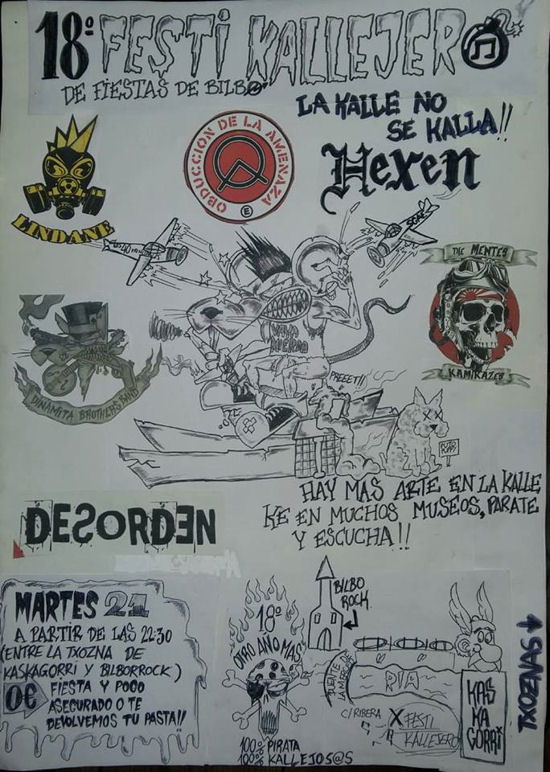 18º FESTI KALLEJERO
DE FIESTAS DE BILBO
LA KALLE NO
SE KALLA!!
LINDANE
OBDUCCION DE LA AMENAZA
E
Hexen
THE MENTES
KAMIKAZES
DINAMITA BROTHERS BAND
PREEET!!
HAY MAS ARTE EN LA KALLE
KE EN MUCHOS MUSEOS, PARATE
Y ESCUCHA!!
DESORDEN
MARTES 21
A PARTIR DE LAS 22:30
(ENTRE LA TXOZNA DE
KASKAGORRI Y BILBORROCK)
0€ FIESTA Y POGO
ASEGURADO O TE
DEVOLVEMOS TU PASTA!!
18º
OTRO AÑO MAS
100% PIRATA
100% KALLEJOS@S
BILBO
ROCK
PUENTE
LA MERCED
RIA
C/ RIBERA
X FESTI
KALLEJERO
KAS
KA
GORRI
TXOZNAS